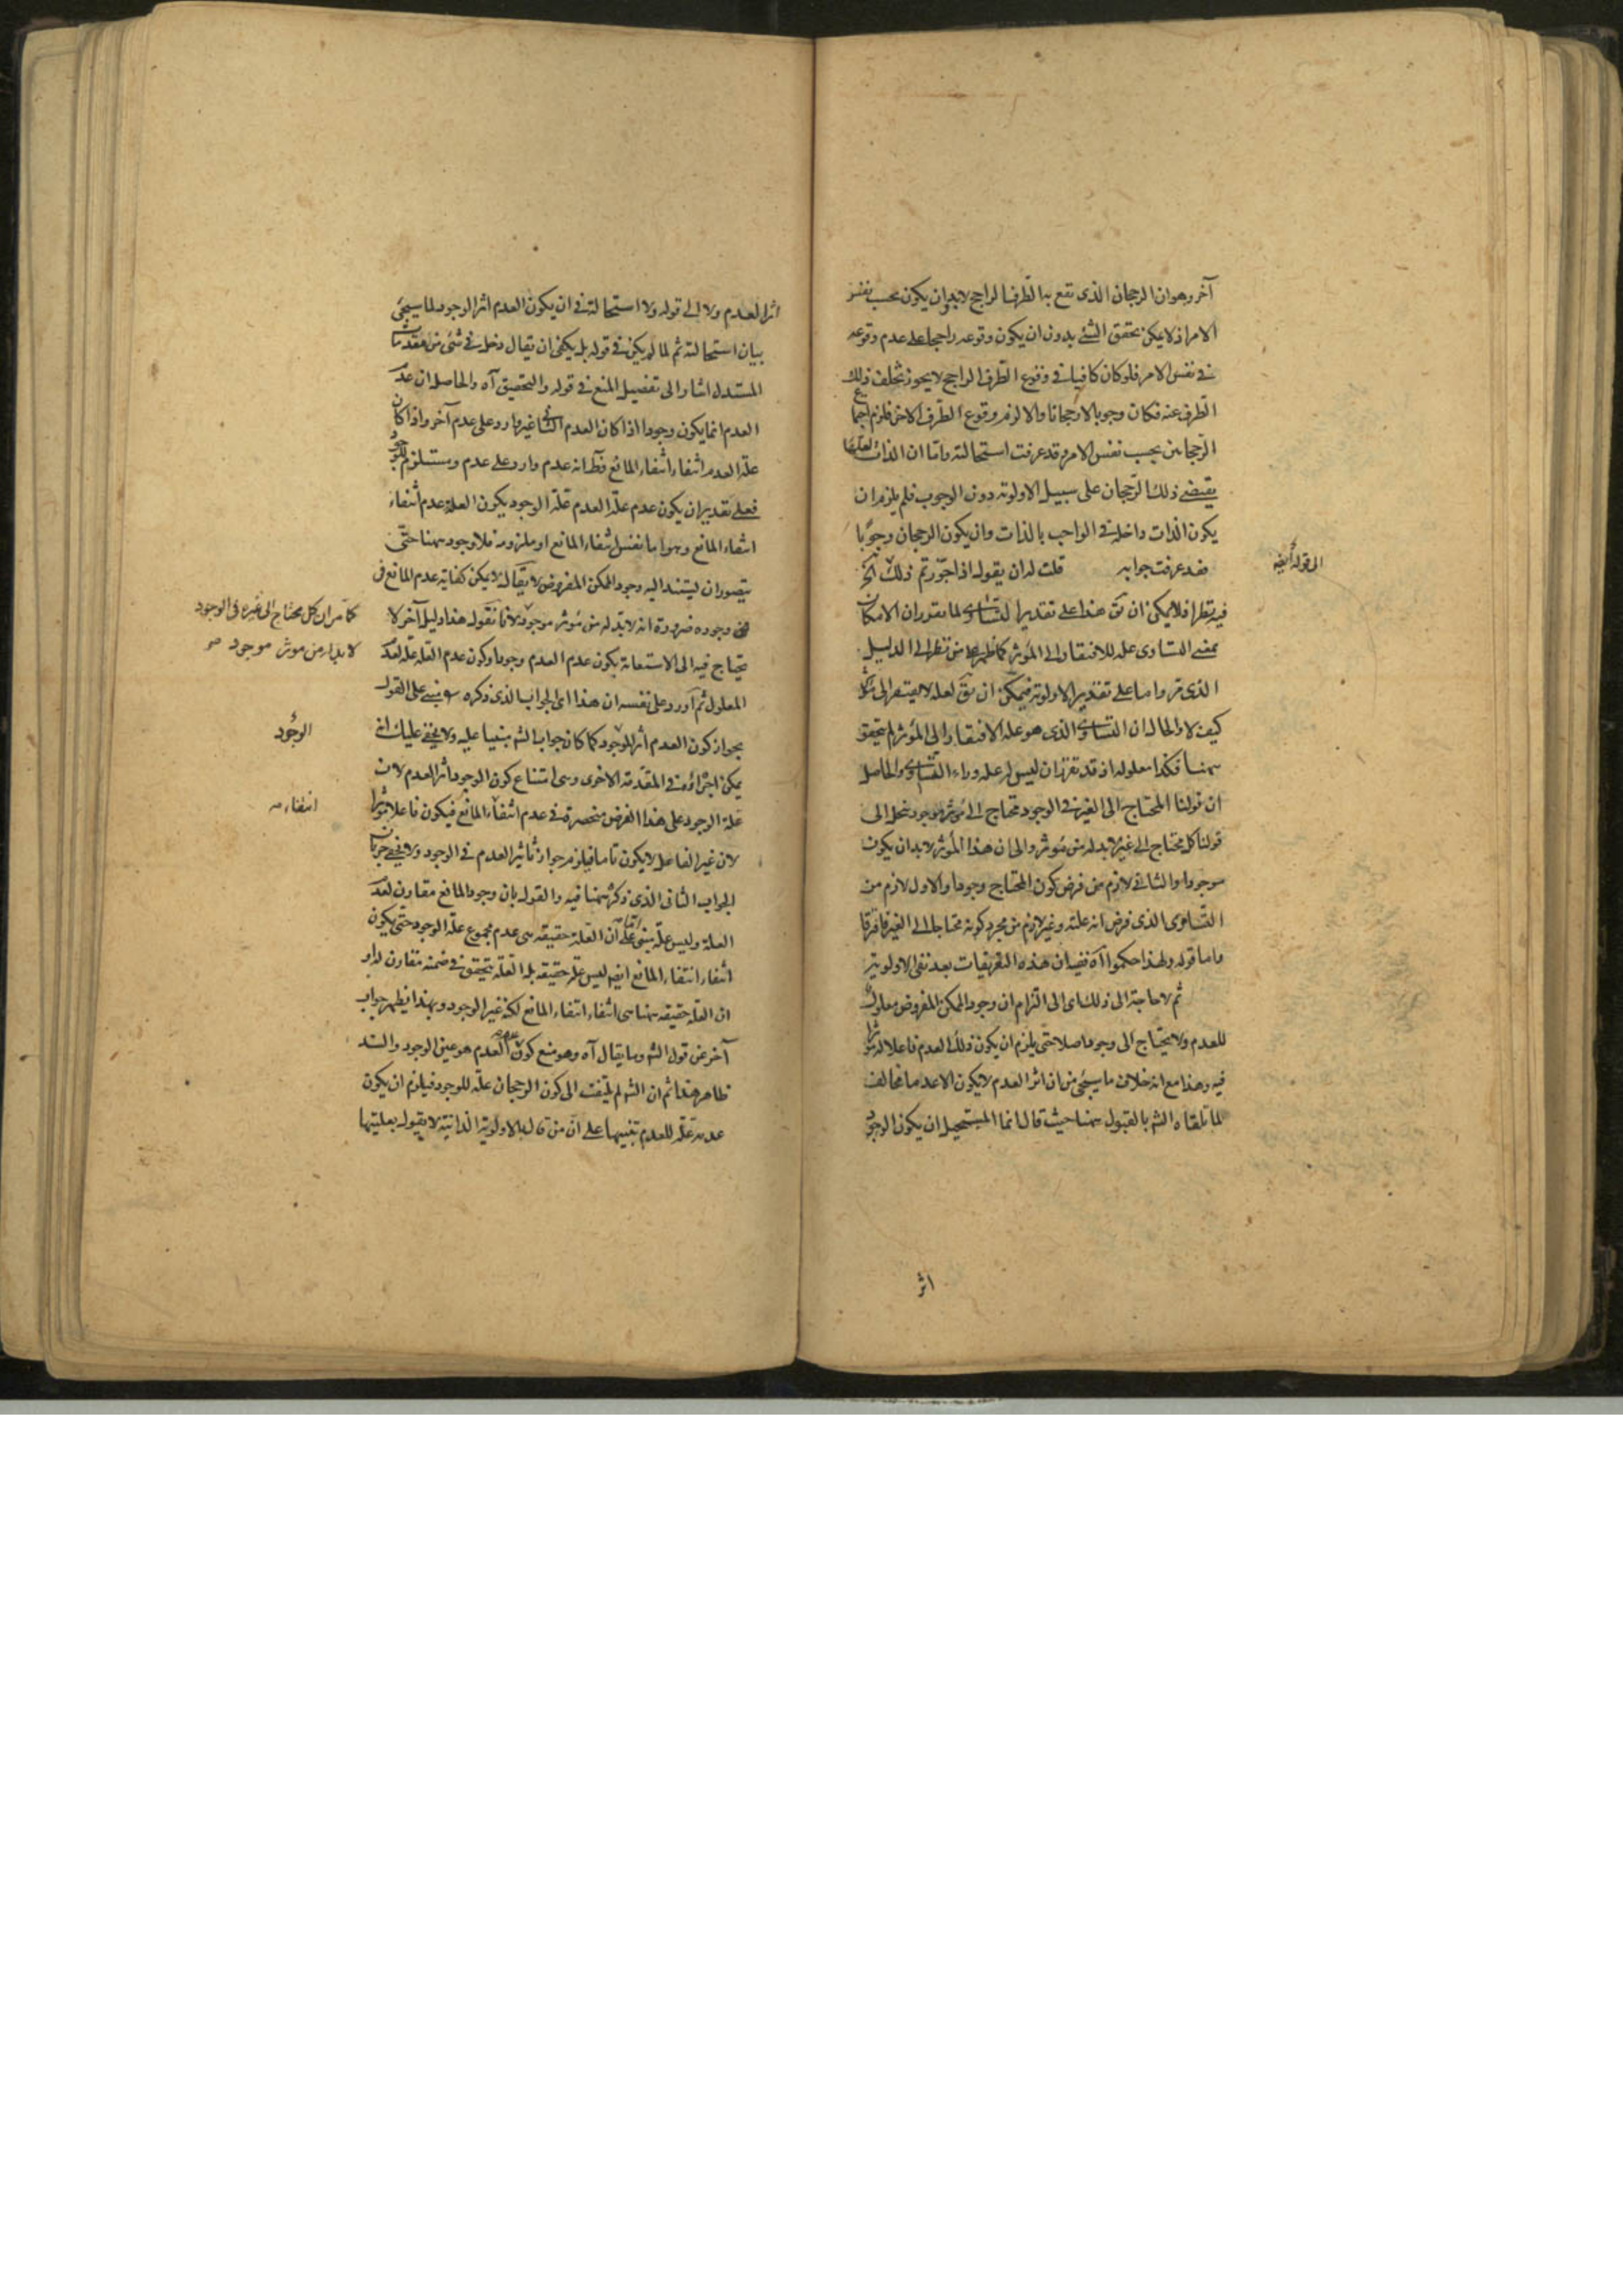 آخر وهو ان الرجحان الذى تقع به الطرف الراجح لابد وان يكون بحسب نفس
الامر اذ لا يمكن تحقق الشئ بدون ان يكون وقوعه راجحا على عدم وقوعه
فى نفس الامر فلو كان كافيا فى وقوع الطرف الراجح لا يجوز تخلف ذلك
الطرف عنه فكان وجوبا لا رجحانا والا لزم وقوع الطرف الاخر فلزم اجتماع
الرجحانين بحسب نفس الامر وقد عرفت استحالته واما ان الذات لعلها
يقتضى ذلك الرجحان على سبيل الاولوية دون الوجوب فلم يلزم ان
يكون الذات داخلة فى الواجب بالذات وان يكون الرجحان وجوبا
فقد عرفت جوابه قلت له ان يقول اذا جوزتم ذلك الخ
الى قوله ايضه
فيه نظر اذ لا يمكن ان يق هذا على تقدير التساوى لما تقرر ان الامكان
بمعنى التساوى علة للافتقار الى المؤثر كما ظهر من نظر الى الدليل
الذى مر واما على تقدير الاولوية فيمكن ان يق لعله لا يفتقر الى مؤثر
كيف لا والحال ان التساوى الذى هو علة الافتقار الى المؤثر لم يتحقق
ههنا فكذا معلوله اذ قد تقرر ان ليس له علة وراء التساوى والحاصل
ان قولنا المحتاج الى الغير فى الوجود محتاج الى مؤثر موجود ينحل الى
قولنا كل محتاج الى غيره لابد له من مؤثر والى ان هذا المؤثر لابد ان يكون
موجودا والثانى لازم من فرض كون المحتاج وجودا والاول لازم من
التساوى الذى فرض انه علته وغير لازم من مجرد كونه محتاجا الى الغير فافترقا
واما قوله ولهذا حكموا اه ففيه ان هذه التفريعات بعد نفى الاولوية
ثم لا حاجة الى ذلك اى الى التزام ان وجود الممكن المفروض معلول
للعدم ولا يحتاج الى وجود اصلا حتى يلزم ان يكون ذلك العدم فاعلا له مؤثرا
فيه وهذا مع انه خلاف ما سيجئ من ان اثر العدم لا يكون الا عدما مخالف
لما تلقاه الش بالقبول ههنا حيث قال انما المستحيل ان يكون الوجود
اثر
اثر العدم ولا الى قوله ولا استحالة فى ان يكون العدم اثر الوجود لما سيجئ
بيان استحالته ثم لما لم يكن فى قوله بل يكفى ان يقال دخل فى شئ من مقدمات
المستدل اشار الى تفصيل المنع فى قوله والتحقيق اه والحاصل ان عدم
العدم انما يكون وجودا اذا كان العدم الثانى غير وارد على عدم آخر واذا كان
علة العدم انتفاء انتفاء المانع فظ انه عدم وارد على عدم ومستلزم للوجود
فعلى تقدير ان يكون عدم علة العدم علة الوجود يكون العلة عدم انتفاء
انتفاء المانع وهو اما نفس انتفاء المانع او ملزومه فلا وجود ههنا حتى
يتصور ان يستند اليه وجود الممكن المفروض لا يقال لا يكن كفاية عدم المانع فى
وجوده ضرورة انه لابد له من مؤثر موجود لانا نقول هذا دليل آخر لا
كما مر ان كل محتاج الى غيره فى الوجود
لا بد له من موثر موجود صح
يحتاج فيه الى الاستعانة بكون عدم العدم وجودا وكون عدم العلة علة لعدم
المعلول ثم اورد على نفسه ان هذا اى الجواب الذى ذكره مبنى على القول
بجواز كون العدم أثرا للوجود كما كان جواب الش مبنيا عليه ولا يخفى عليك انه
الوجود
يمكن اجراؤه فى المقدمة الاخرى وهى امتناع كون الوجود أثر العدم لان
علة الوجود على هذا الفرض منحصرة فى عدم انتفاء المانع فيكون فاعلا مؤثرا
انتفاء صه
لان غير الفاعل لا يكون تاما فيلزم جواز تأثير العدم فى الوجود ولا يخفى جريان
الجواب الثانى الذى ذكر ههنا فيه والقول بان وجود المانع مقارن لعدم
العلة وليس علة يبتنى على ان العلة حقيقة هى عدم مجموع علة الوجود حتى يكون
انتفاء انتفاء المانع ايضه ليس علة حقيقة بل العلة يتحقق فى ضمنه مقارن له او
ان العلة حقيقة ههنا هى انتفاء انتفاء المانع لكنه غير الوجود وبهذا يظهر جواب
آخر عن قول الش وما يقال اه وهو منع كون عدم العدم هو عين الوجود والسند
ظاهر هذا ثم ان الش لم يلتفت الى كون الرجحان علة للوجود فيلزم ان يكون
عدمه علة للعدم تنبيها على ان من قال بالاولوية الذاتية لا يقول بعليتها